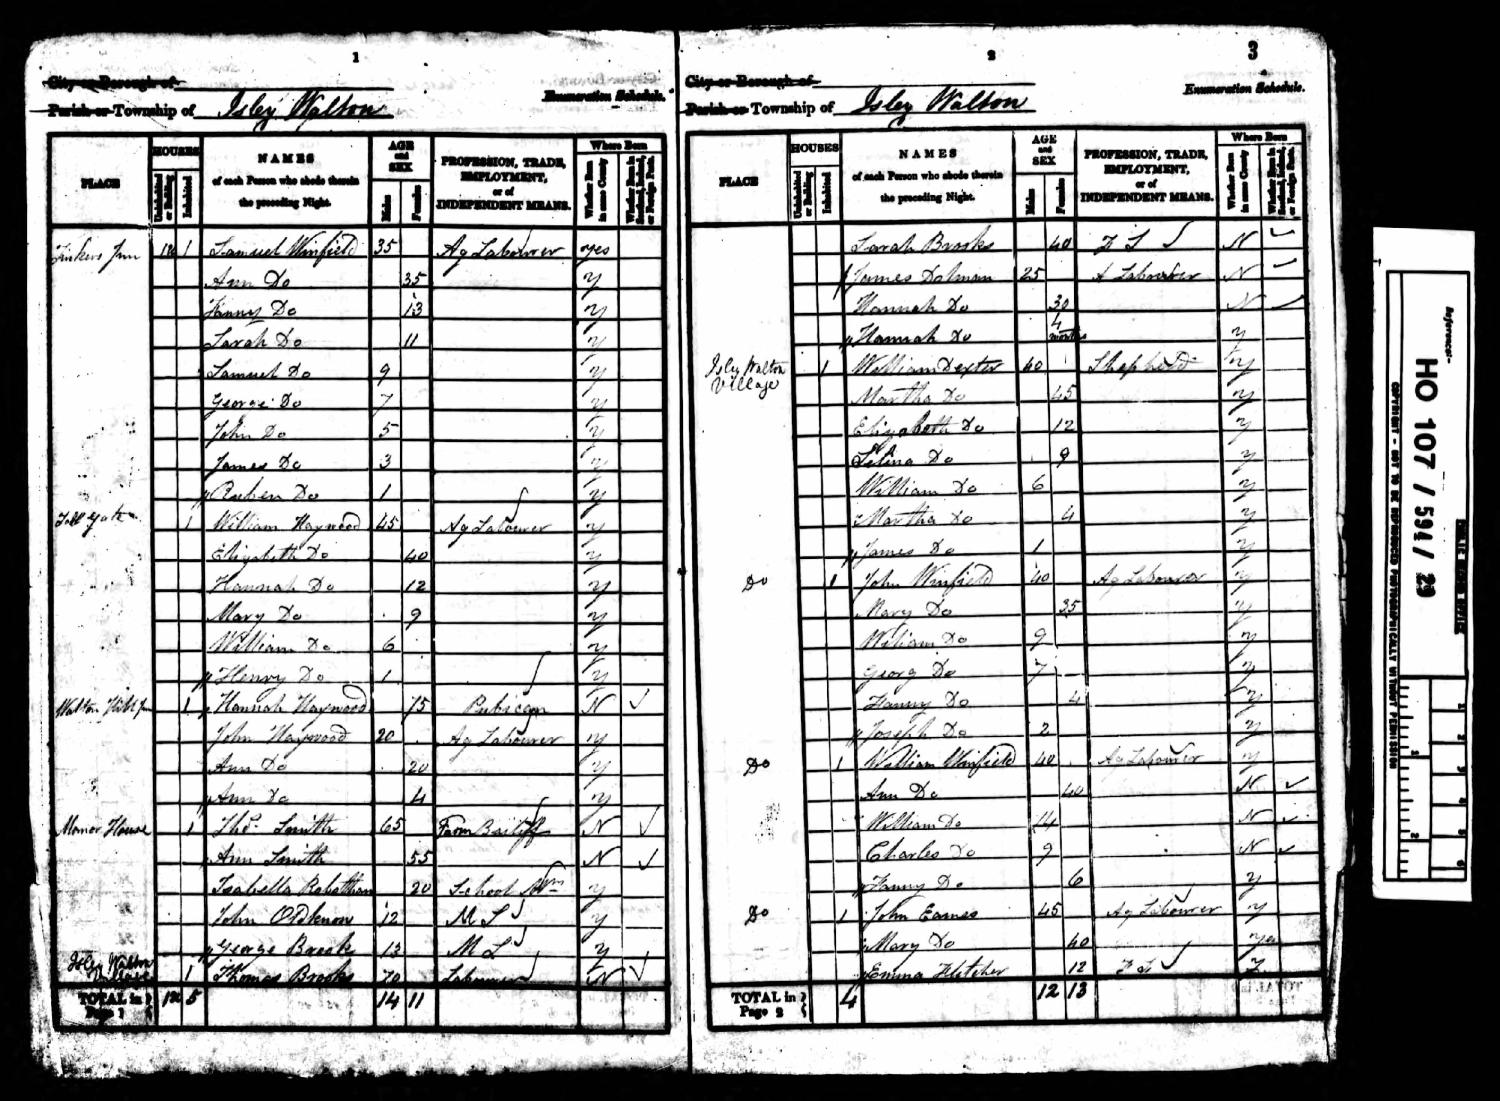 1
City or Borough of
Parish or Township of Isley Walton
Enumeration Schedule.
PLACE
HOUSES
Uninhabited or Building
Inhabited
NAMES
of each Person who abode therein
the preceding Night.
AGE and SEX
Males
Females
PROFESSION, TRADE, EMPLOYMENT, or of INDEPENDENT MEANS.
Where Born
Whether Born in same County
Whether Born in Scotland, Ireland, or Foreign Parts.
Tinkers Inn 1 Samuel Winfield 35 Ag Labourer yes
Ann Do 35 y
Fanny Do 13 y
Sarah Do 11 y
Samuel Do 9 y
George Do 7 y
John Do 5 y
James Do 3 y
Ruben Do 1 y
Toll Gate 1 William Haywood 45 Ag Labourer y
Elizabeth Do 40 y
Hannah Do 12 y
Mary Do 9 y
William Do 6 y
Henry Do 1 y
Walton Hill 1 Hannah Haywood 75 Publican N
John Haywood 20 Ag Labourer y
Ann Do 20 y
Ann Do 4 y
Manor House 1 Thos. Smith 65 Farm Bailiff N
Ann Smith 55 N
Isabella 20 School y
John Oldknow 12 M S y
George Brooks 13 M S y
Isley Walton Village 1 Thomas Brooks 70 Labourer N
TOTAL in Page 1 5 14 11
2
3
City or Borough of
Parish or Township of Isley Walton
Enumeration Schedule.
PLACE
HOUSES
Uninhabited or Building
Inhabited
NAMES
of each Person who abode therein
the preceding Night.
AGE and SEX
Males
Females
PROFESSION, TRADE, EMPLOYMENT, or of INDEPENDENT MEANS.
Where Born
Whether Born in same County
Whether Born in Scotland, Ireland, or Foreign Parts.
Sarah Brooks 40 F S N
James Dolman 25 A Labourer N
Hannah Do 30 N
Hannah Do 4 months y
Isley Walton Village 1 William Dexter 40 Shepherd y
Martha Do 45 y
Elizabeth Do 12 y
Selina Do 9 y
William Do 6 y
Martha Do 4 y
James Do 1 y
Do 1 John Winfield 40 Ag Labourer y
Mary Do 35 y
William Do 9 y
Georg Do 7 y
Fanny Do 4 y
Joseph Do 2 y
Do 1 William Winfield 40 Ag Labourer y
Ann Do 40 N
William Do 14 N
Charles Do 9 N
Fanny Do 6 y
Do 1 John Eames 45 Ag Labourer y
Mary Do 40 yes
Emma Fletcher 12 F S y
TOTAL in Page 2 4 12 13
Reference:-
HO 107 / 594 / 29
PUBLIC RECORD OFFICE
COPYRIGHT - NOT TO BE REPRODUCED PHOTOGRAPHICALLY WITHOUT PERMISSION